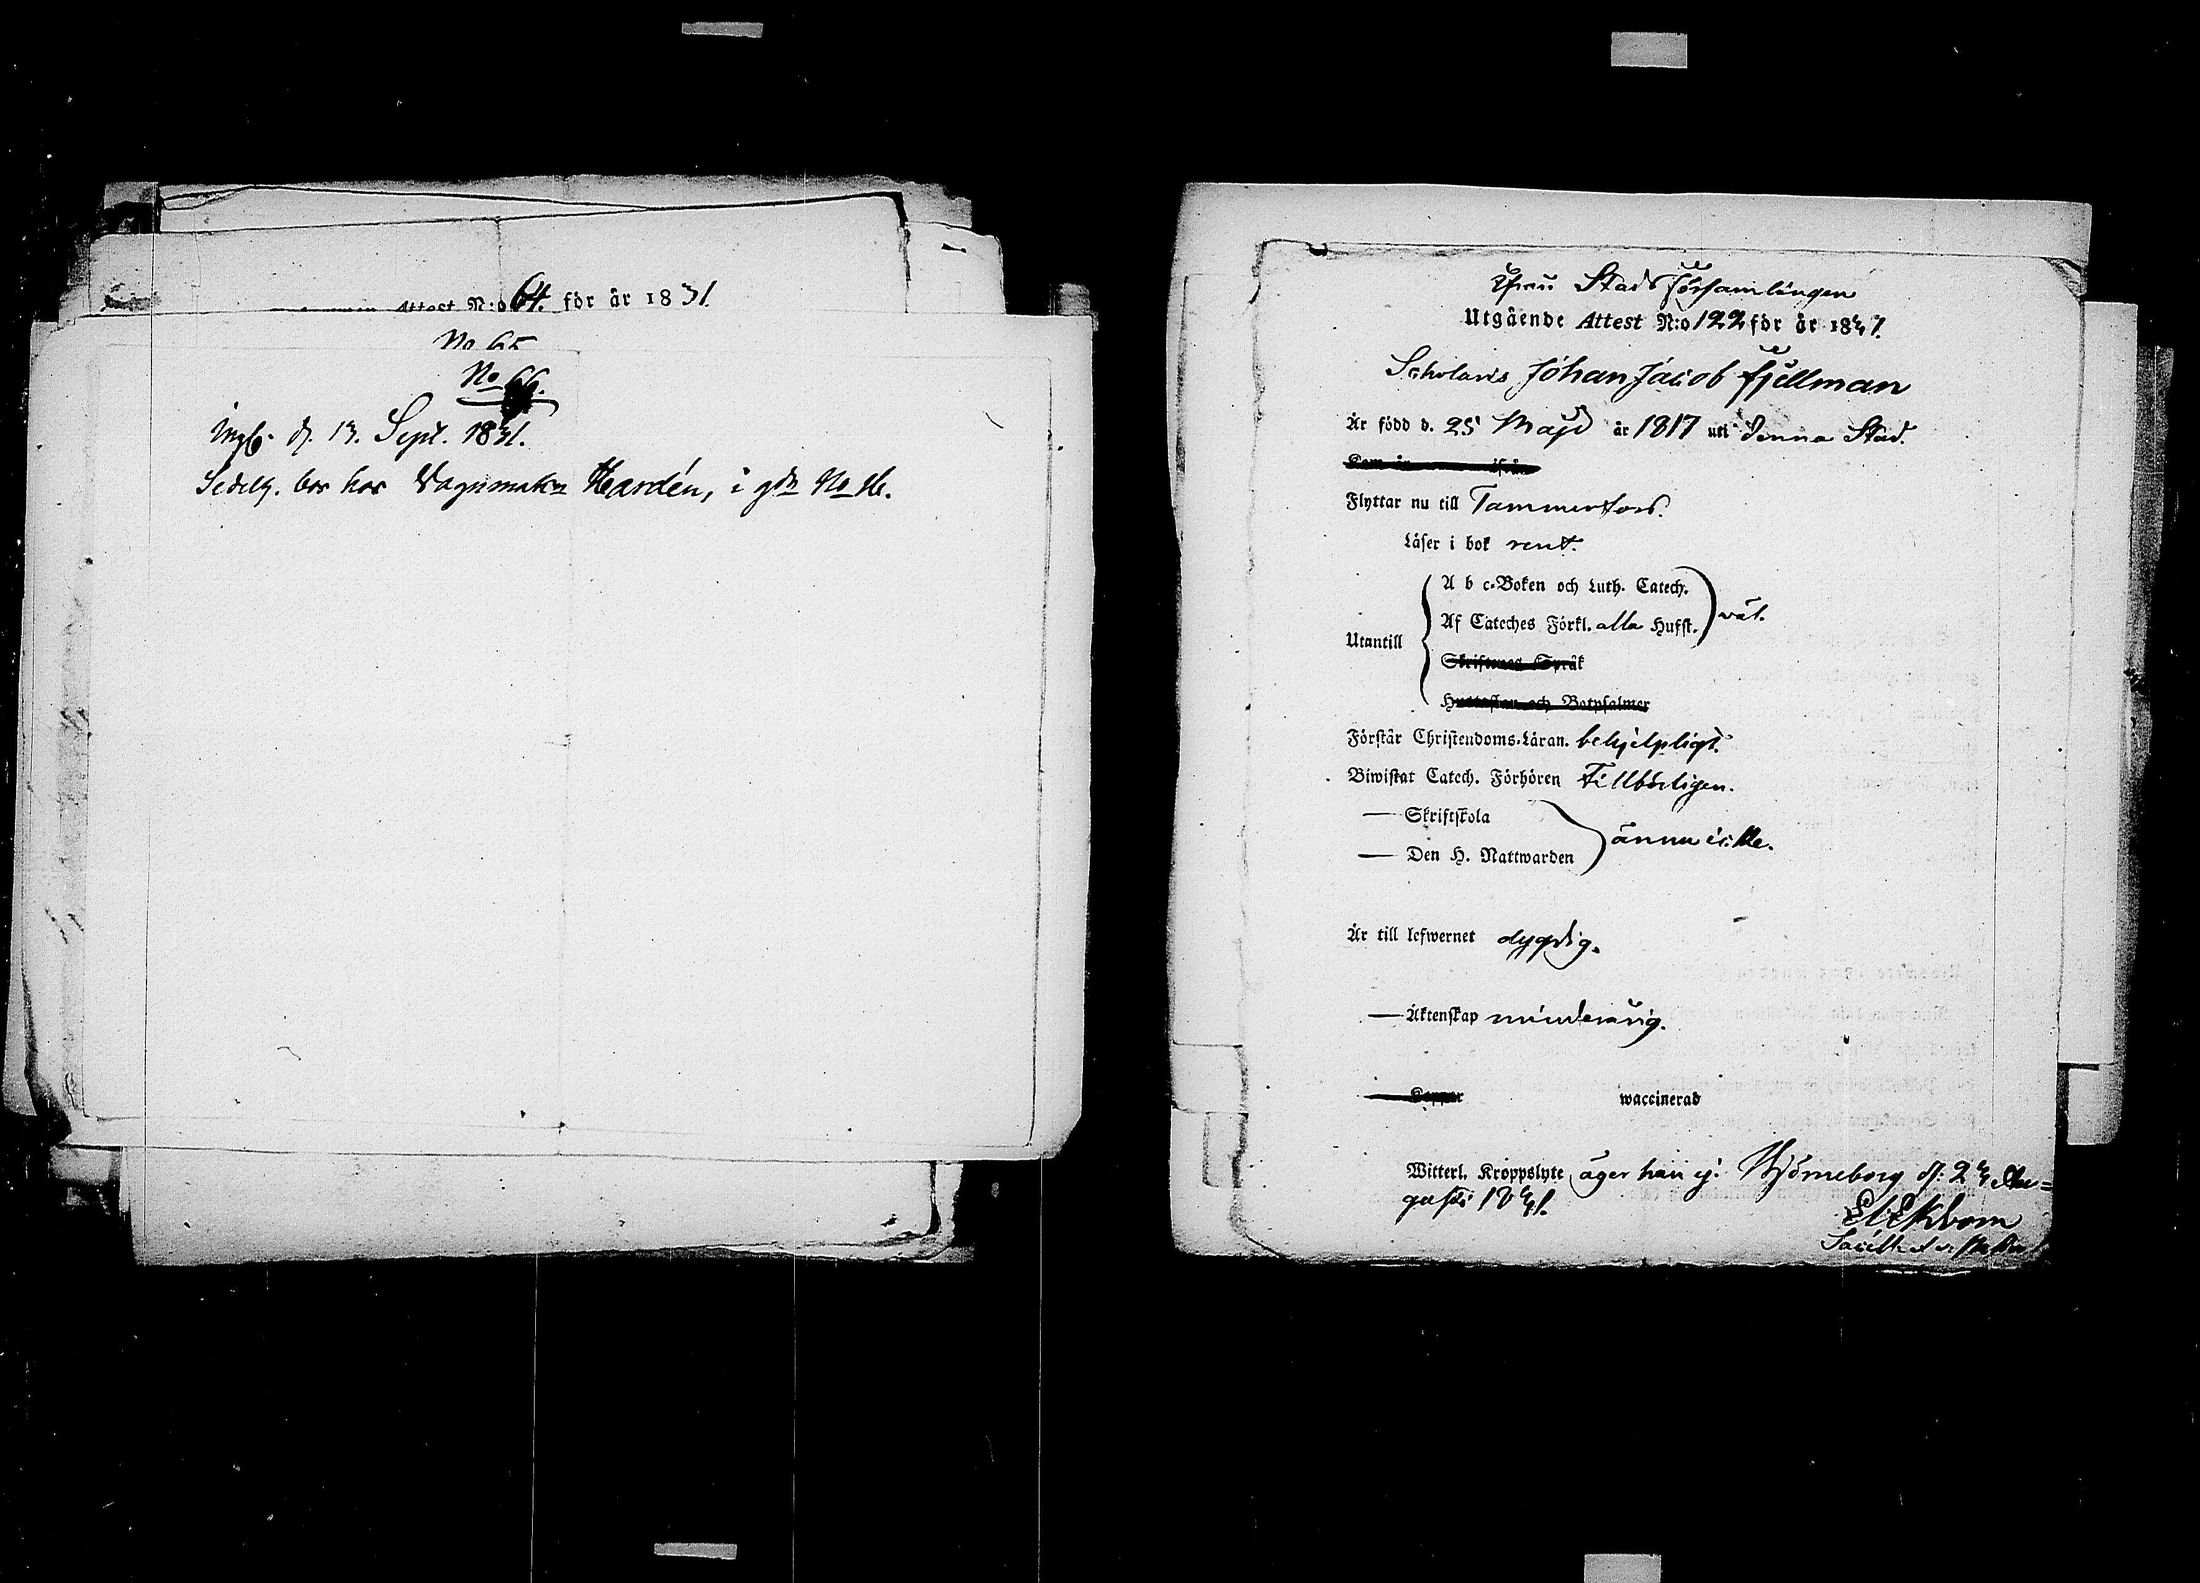 Attest N:o 64. för år 1831.
No 65
No 66.
d. 13. Sept. 1831.
bor hos Vagnmakr Hardén, i gdn No
Ifrån Stads församlingen
Utgående Attest N:o 122 för år 1831.
Scholaris Johan Jacob Fjellman
Är född d. 25 Maji år 1817 uti denna Stad.
Flyttar nu till Tammerfors.
Läser i bok rent.
Utantill
A b c-Boken och Luth. Catech.
Af Cateches Förkl. alla Hufst. väl.
Skriftenes Språk
Hustaflan och Botpsalmer
Förstår Christendoms-Läran. behjelpligt.
Biwistat Catech. Förhören Tillbörligen.
— Skriftskola
— Den H. Nattwarden ännu icke.
Är till lefwernet dygdig.
— Äktenskap minderårig.
— Koppor waccinerad
Witterl. Kroppslyte äger han ej. Björneborg d. 23 Au=
gusti 1831.
Ekbom